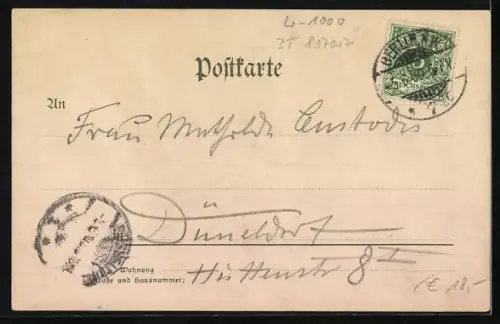 b-1000
3T 837017
Postkarte
An
Frau Mathilde Custodis
in Düsseldorf
Wohnung
(Straße und Hausnummer)
Hüttenstr 8 I
€ 18,-